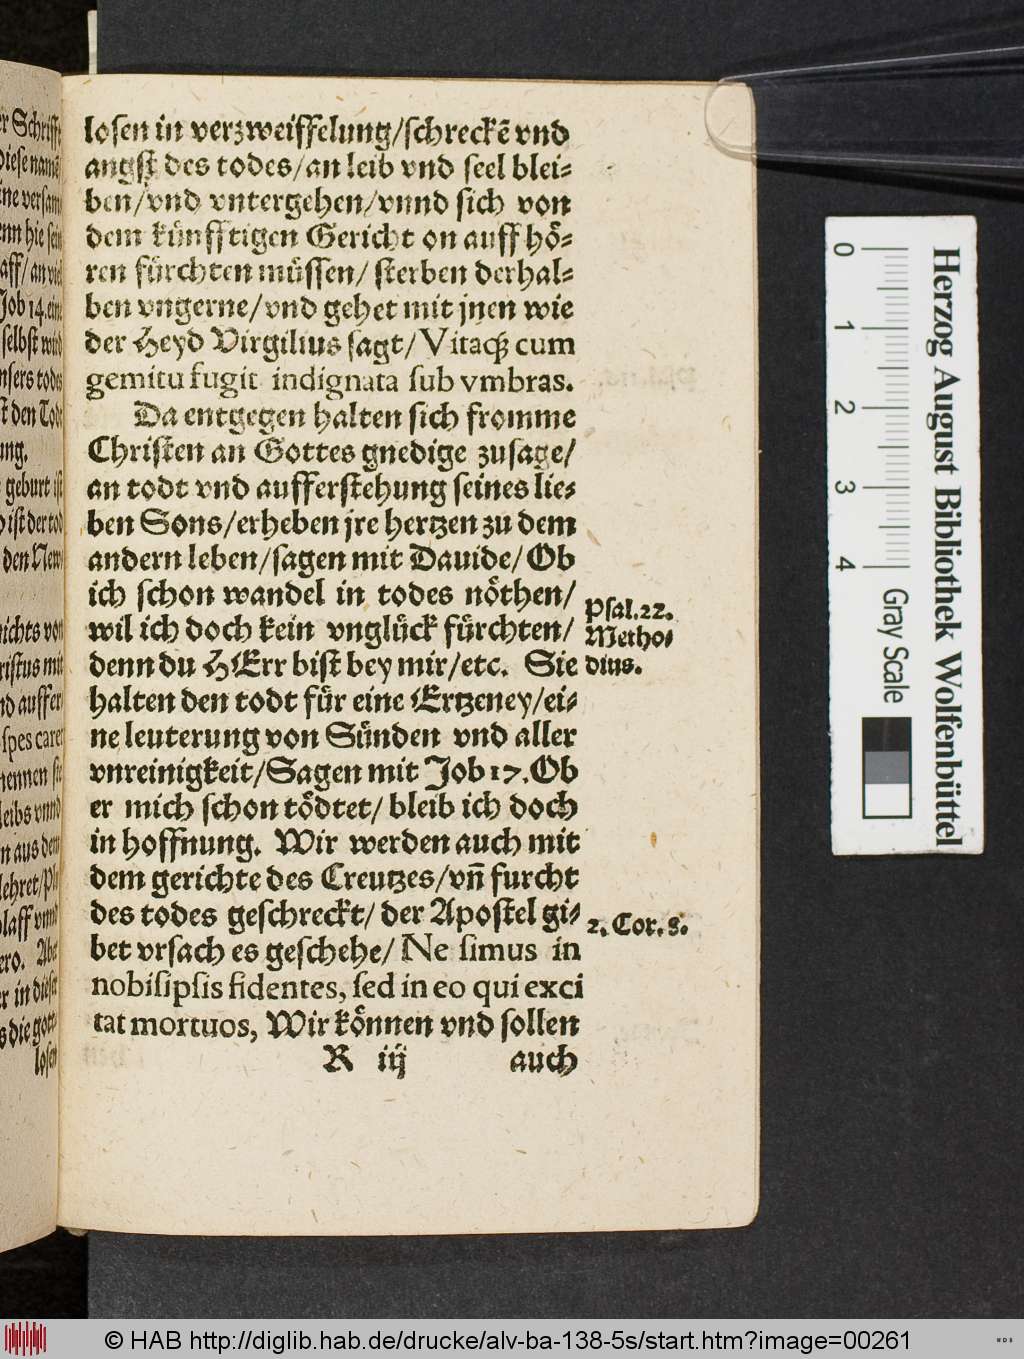 losen in verzweiffelung/schreckē vnd
angst des todes/an leib vnd seel blei⸗
ben/vnd vntergehen/vnnd sich von
dem künfftigen Gericht on auff hö⸗
ren fürchten müssen/ sterben derhal⸗
ben vngerne/vnd gehet mit jnen wie
der Heyd Virgilius sagt/ Vitaq́; cum
gemitu fugit indignata sub vmbras.
Da entgegen halten sich fromme
Christen an Gottes gnedige zusage/
an todt vnd aufferstehung seines lie⸗
ben Sons/erheben jre hertzen zu dem
andern leben/sagen mit Dauide/ Ob
ich schon wandel in todes nöthen/
wil ich doch kein vnglück fürchten/
denn du HErr bist bey mir/etc. Sie
halten den todt für eine Ertzeney/ei⸗
ne leuterung von Sünden vnd aller
vnreinigkeit/Sagen mit Job 17. Ob
er mich schon tödtet/ bleib ich doch
in hoffnung. Wir werden auch mit
dem gerichte des Creutzes/vñ furcht
des todes geschreckt/ der Apostel gi⸗
bet vrsach es geschehe/ Ne simus in
nobisipsis fidentes, sed in eo qui exci
tat mortuos, Wir können vnd sollen
R iij auch
Psal. 22.
Metho⸗
dius.
2. Cor. 8.
er Schrifft
diese namē
Job 14. ein
selbst wird
nsers todes
st den Tod
ung.
geburt ist
ist der tod
den New
nichts von
ristus mit
nd auffer
spes caret
nennen sie
leibs vnnd
n aus dem
lehret/Ph
laff vnnd
ero. Aber
er in dieser
s die gott
losen
0 1 2 3 4
Herzog August Bibliothek Wolfenbüttel
Gray Scale
© HAB http://diglib.hab.de/drucke/alv-ba-138-5s/start.htm?image=00261
WDB